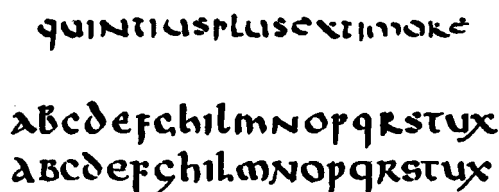 quintiusplusextimore
abcdefghilmnopqrstux
abcdefghilmnopqrstux